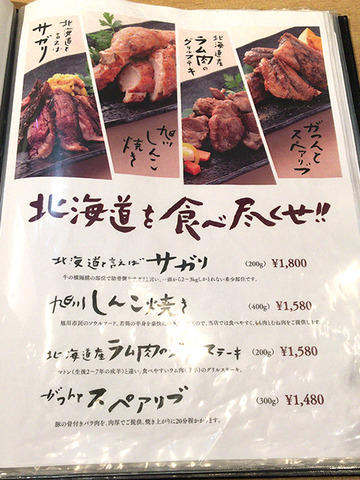 北海道と言えば
サガリ
旭川
しんこ
焼き
北海道産
ラム肉の
グリルステーキ
がつんと
スペアリブ
北海道を食べ尽くせ!!
北海道と言えばサガリ (200g) ¥1,800
牛の横隔膜の部位で肋骨側 言い、一頭から2~3kgしかとれない希少部位です。
旭川しんこ焼き (400g) ¥1,580
旭川市民のソウルフード、若鶏の半身を豪快に で、当店では食べやすく、もも肉とむね肉をご提供します
北海道産ラム肉の ステーキ (200g) ¥1,580
マトン(生後2~7年の成羊)と違い、食べやすいラム肉 のグリルステーキ。
がつんとスペアリブ (300g) ¥1,480
豚の骨付きバラ肉を、肉厚でご提供。焼き上がりに20分程かかります。